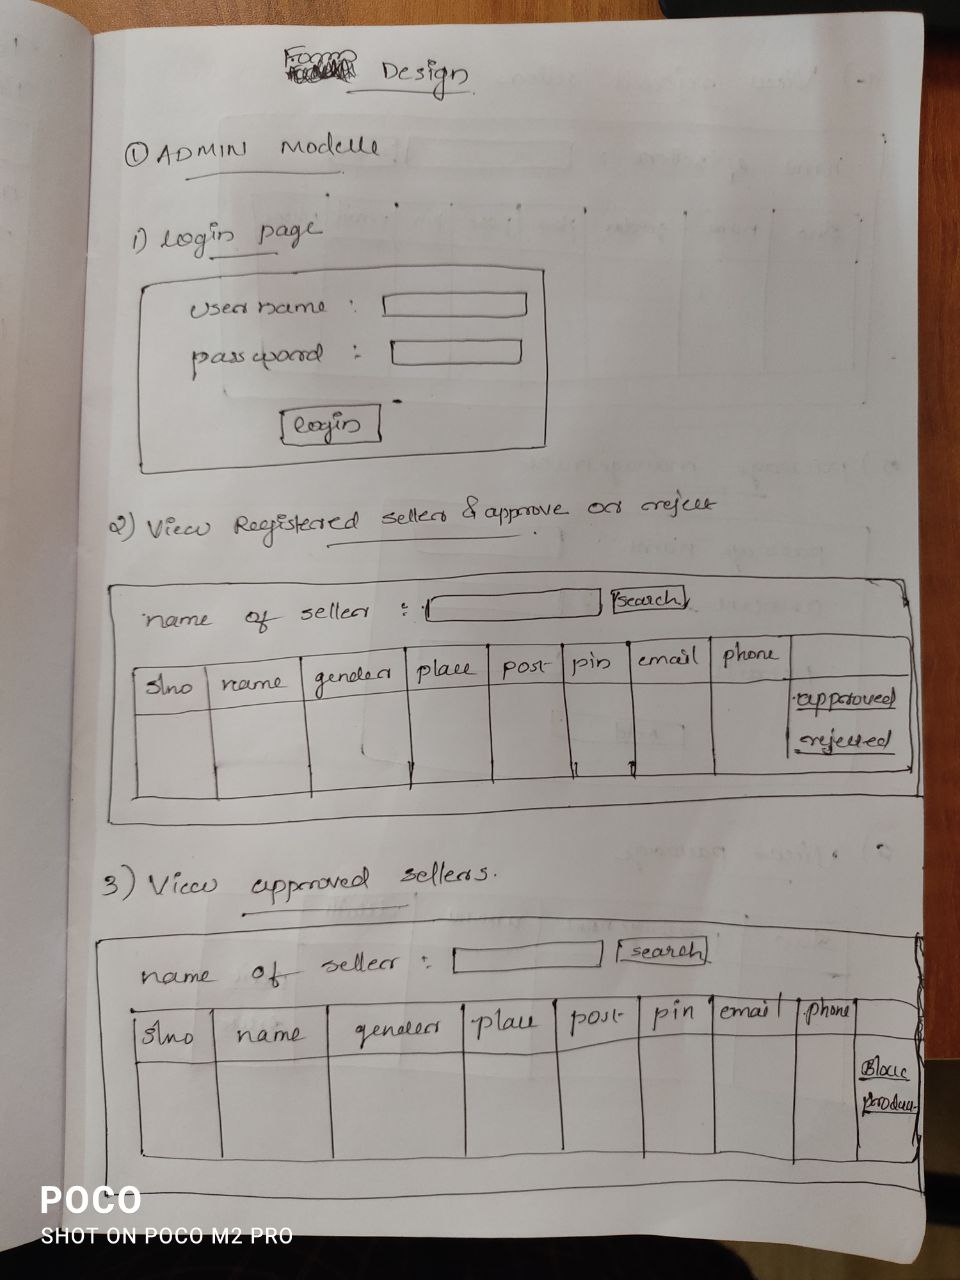 Form Design
① ADMIN Modelle
1) Login page
username :
password :
login
2) View Registered seller & approve or reject
name of seller : search
slno name gender place post pin email phone
approved
rejected
3) View approved sellers.
name of seller : search
slno name gender place post pin email phone
Block
Produc
POCO
SHOT ON POCO M2 PRO